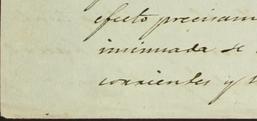 efecto precisam
insinuada se
corrientes y